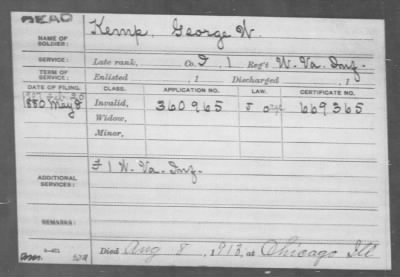 DEAD
NAME OF SOLDIER: Kemp, George W.
SERVICE: Late rank, Co. F, 1 Reg't W. Va. Inf.
TERM OF SERVICE: Enlisted , 1 Discharged , 1
DATE OF FILING. CLASS. APPLICATION NO. LAW. CERTIFICATE NO.
1880 May 8 Invalid, 360965 669365
Widow,
Minor,
ADDITIONAL SERVICES: F 1 W. Va. Inf.
REMARKS:
Died Aug 8, 1913, at Chicago Ill